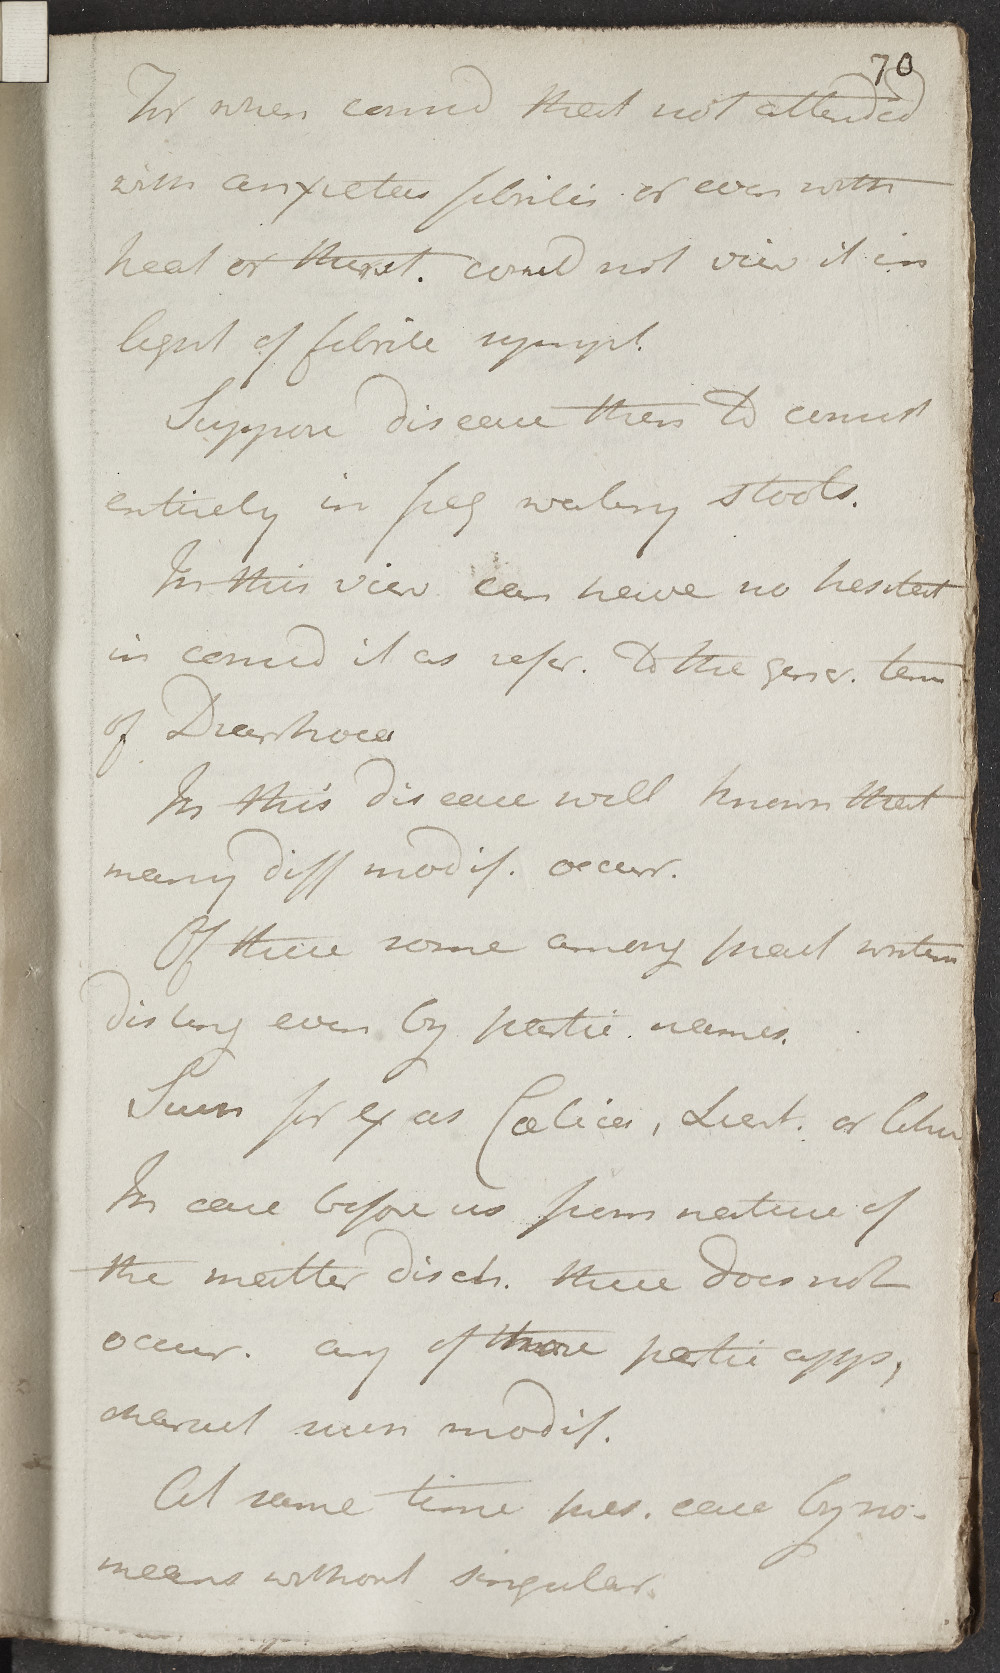 70
For when consid that not attended
with anxietas febrilis or even with
heat or thirst. could not view it in
light of febrile sympt.
Suppose disease then to consist
entirely in freq watery stools.
In this view can have no hesitat
in consid it as refer. to the gener. term
of Diarrhoea
In this disease well known that
many diff modif. occur.
Of these some among pract writers
disting even by partic. names.
Such for ex as Cœlica, Lient. or
In case before us from nature of
the matter disch. there does not
occur. any of those partic apps,
charact such modif.
At same time pres. case by no-
means without singular.